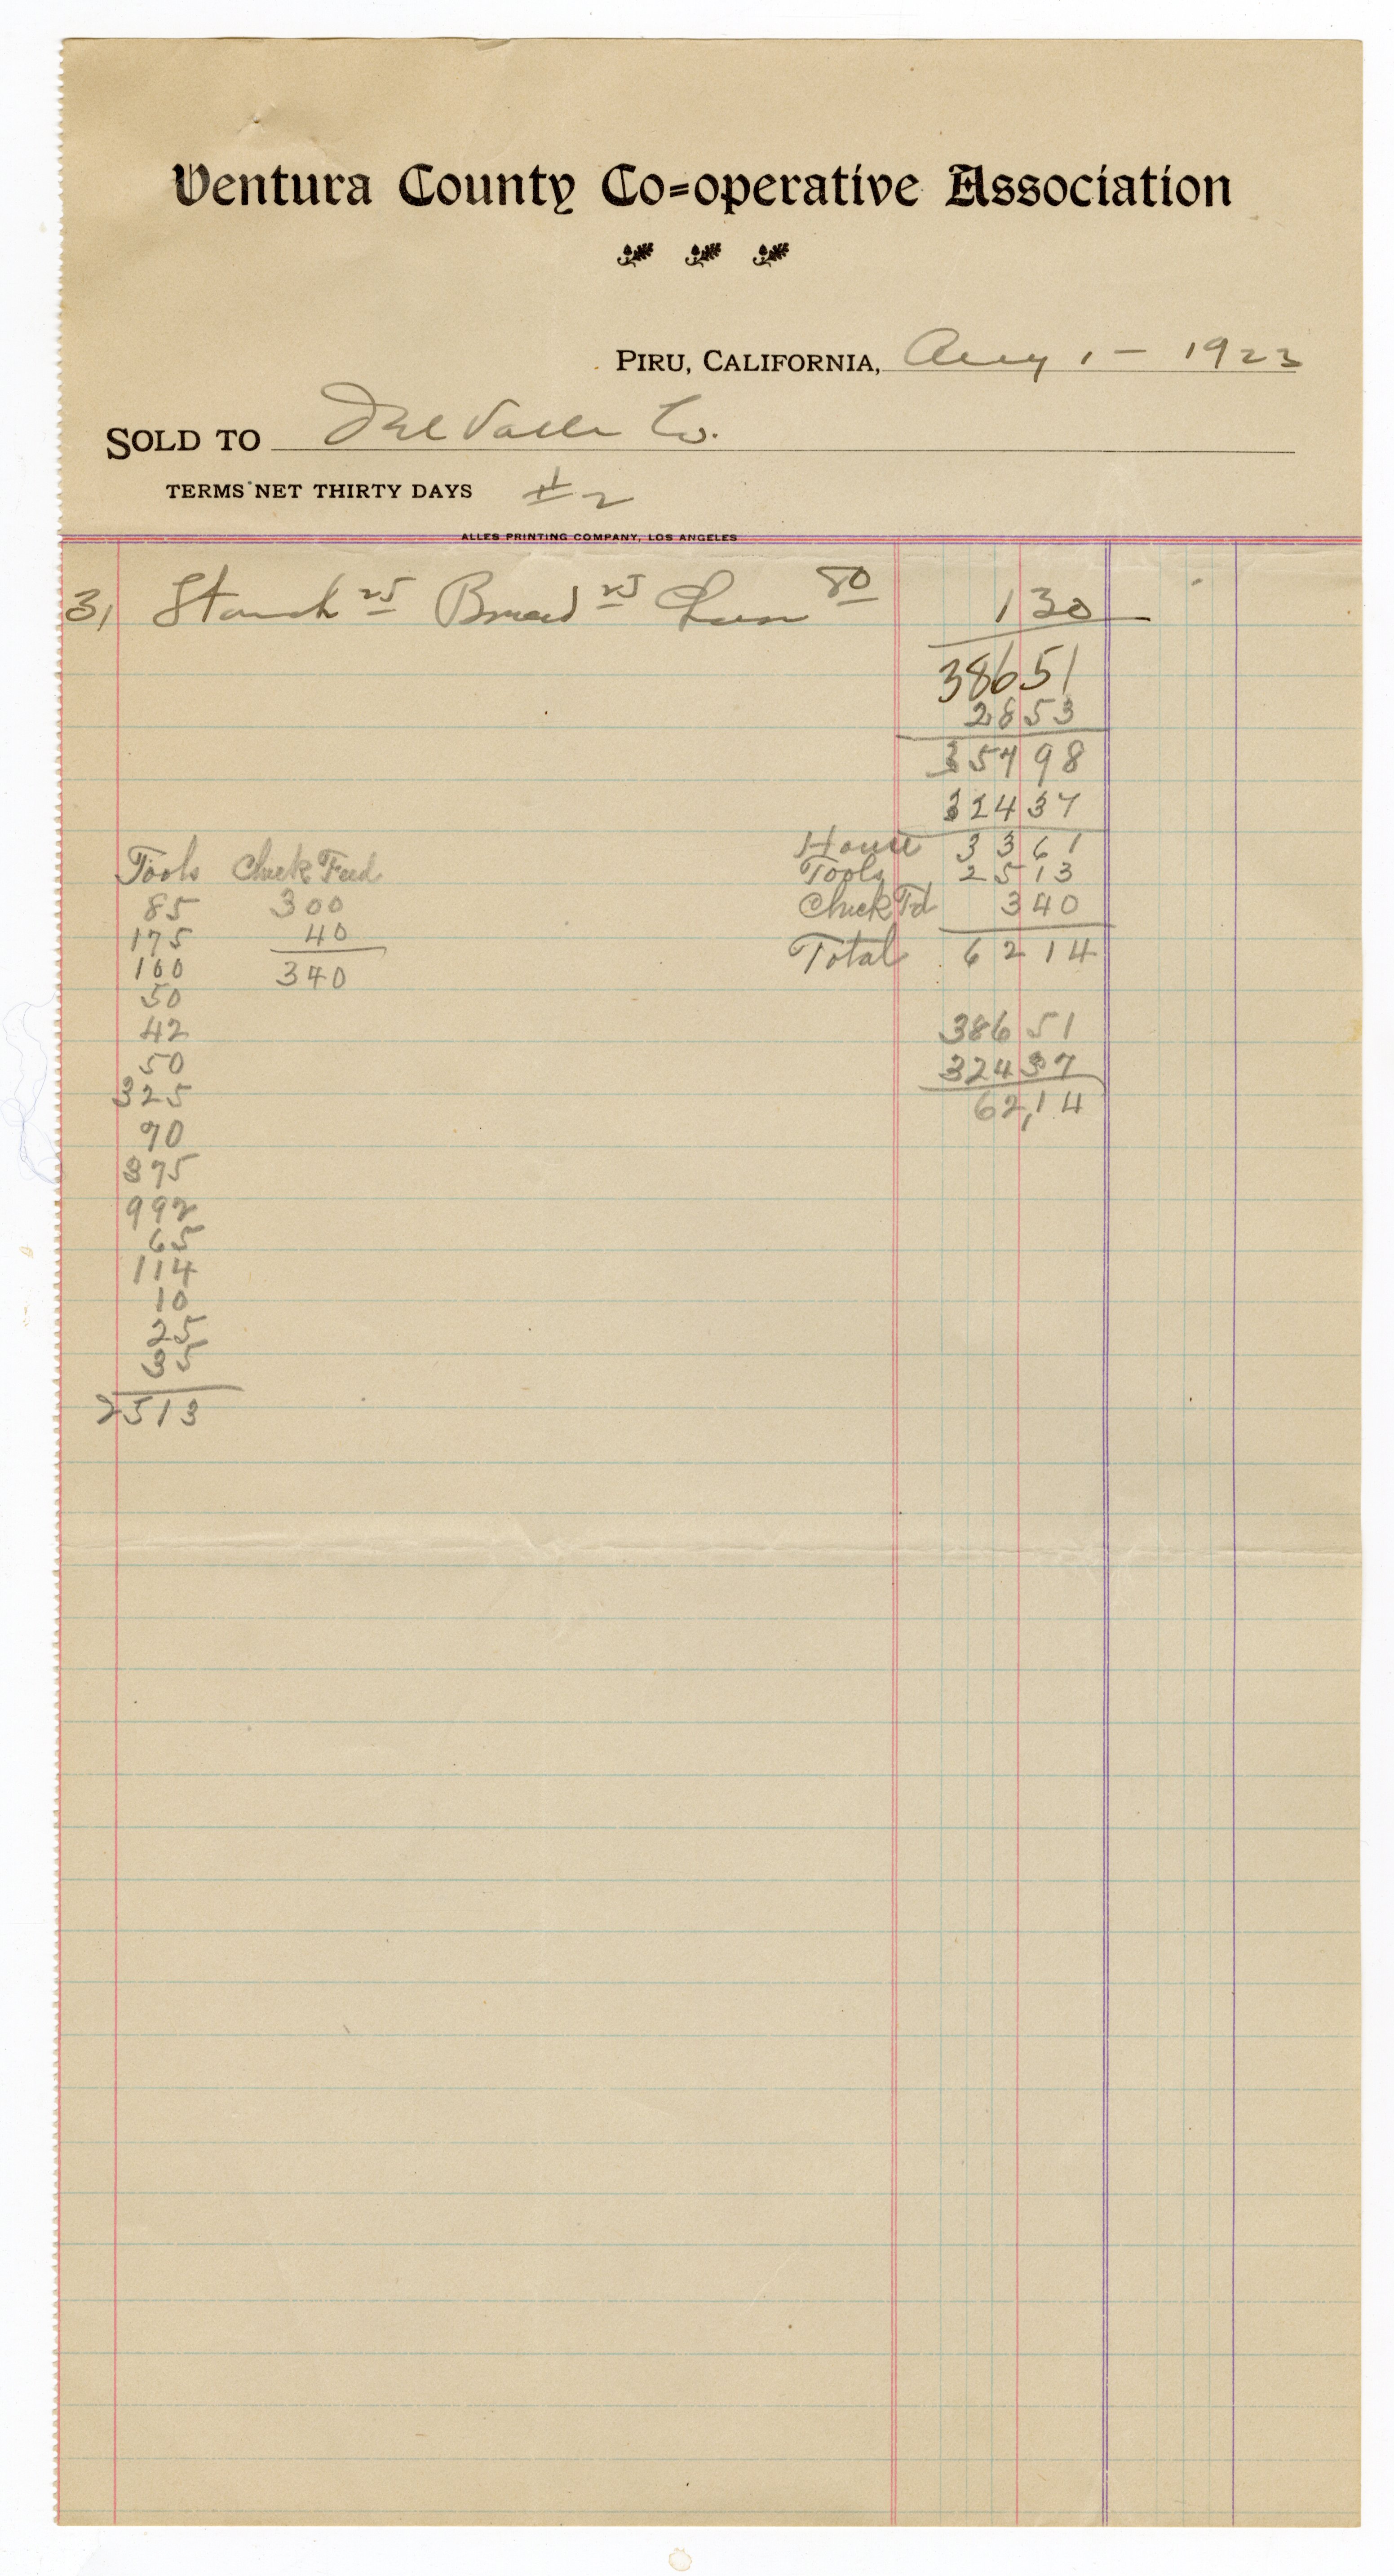 Ventura County Co=operative Association
PIRU, CALIFORNIA, Aug 1 - 1923
SOLD TO Del Valle Co.
TERMS NET THIRTY DAYS #2
ALLES PRINTING COMPANY, LOS ANGELES
31 Starch 25 Bread 25 80 1 30
386 51
28 53
357 98
324 37
House 33 61
Tools 25 13
Chick Fd 3 40
Total 62 14
Tools Chick Feed
85 300
175 40
100 340
50
42
50
325
70
375
992
65
114
10
25
35
2513
386 51
324 37
62,14